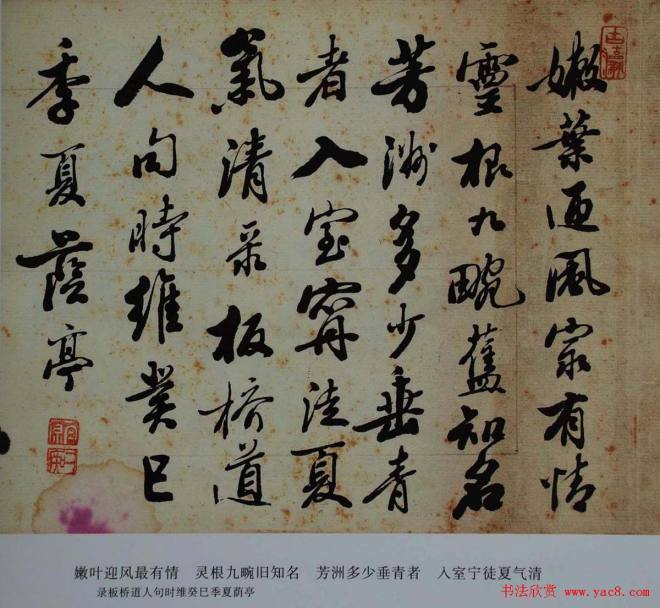 嫩葉迎風最有情
靈根九畹舊知名
芳洲多少垂青
者入室甯徒夏
氣清录板桥道
人句時維癸巳
季夏蔭亭
嫩叶迎风最有情 灵根九畹旧知名 芳洲多少垂青者 入室宁徒夏气清
录板桥道人句时维癸巳季夏荫亭
书法欣赏 www.yac8.com